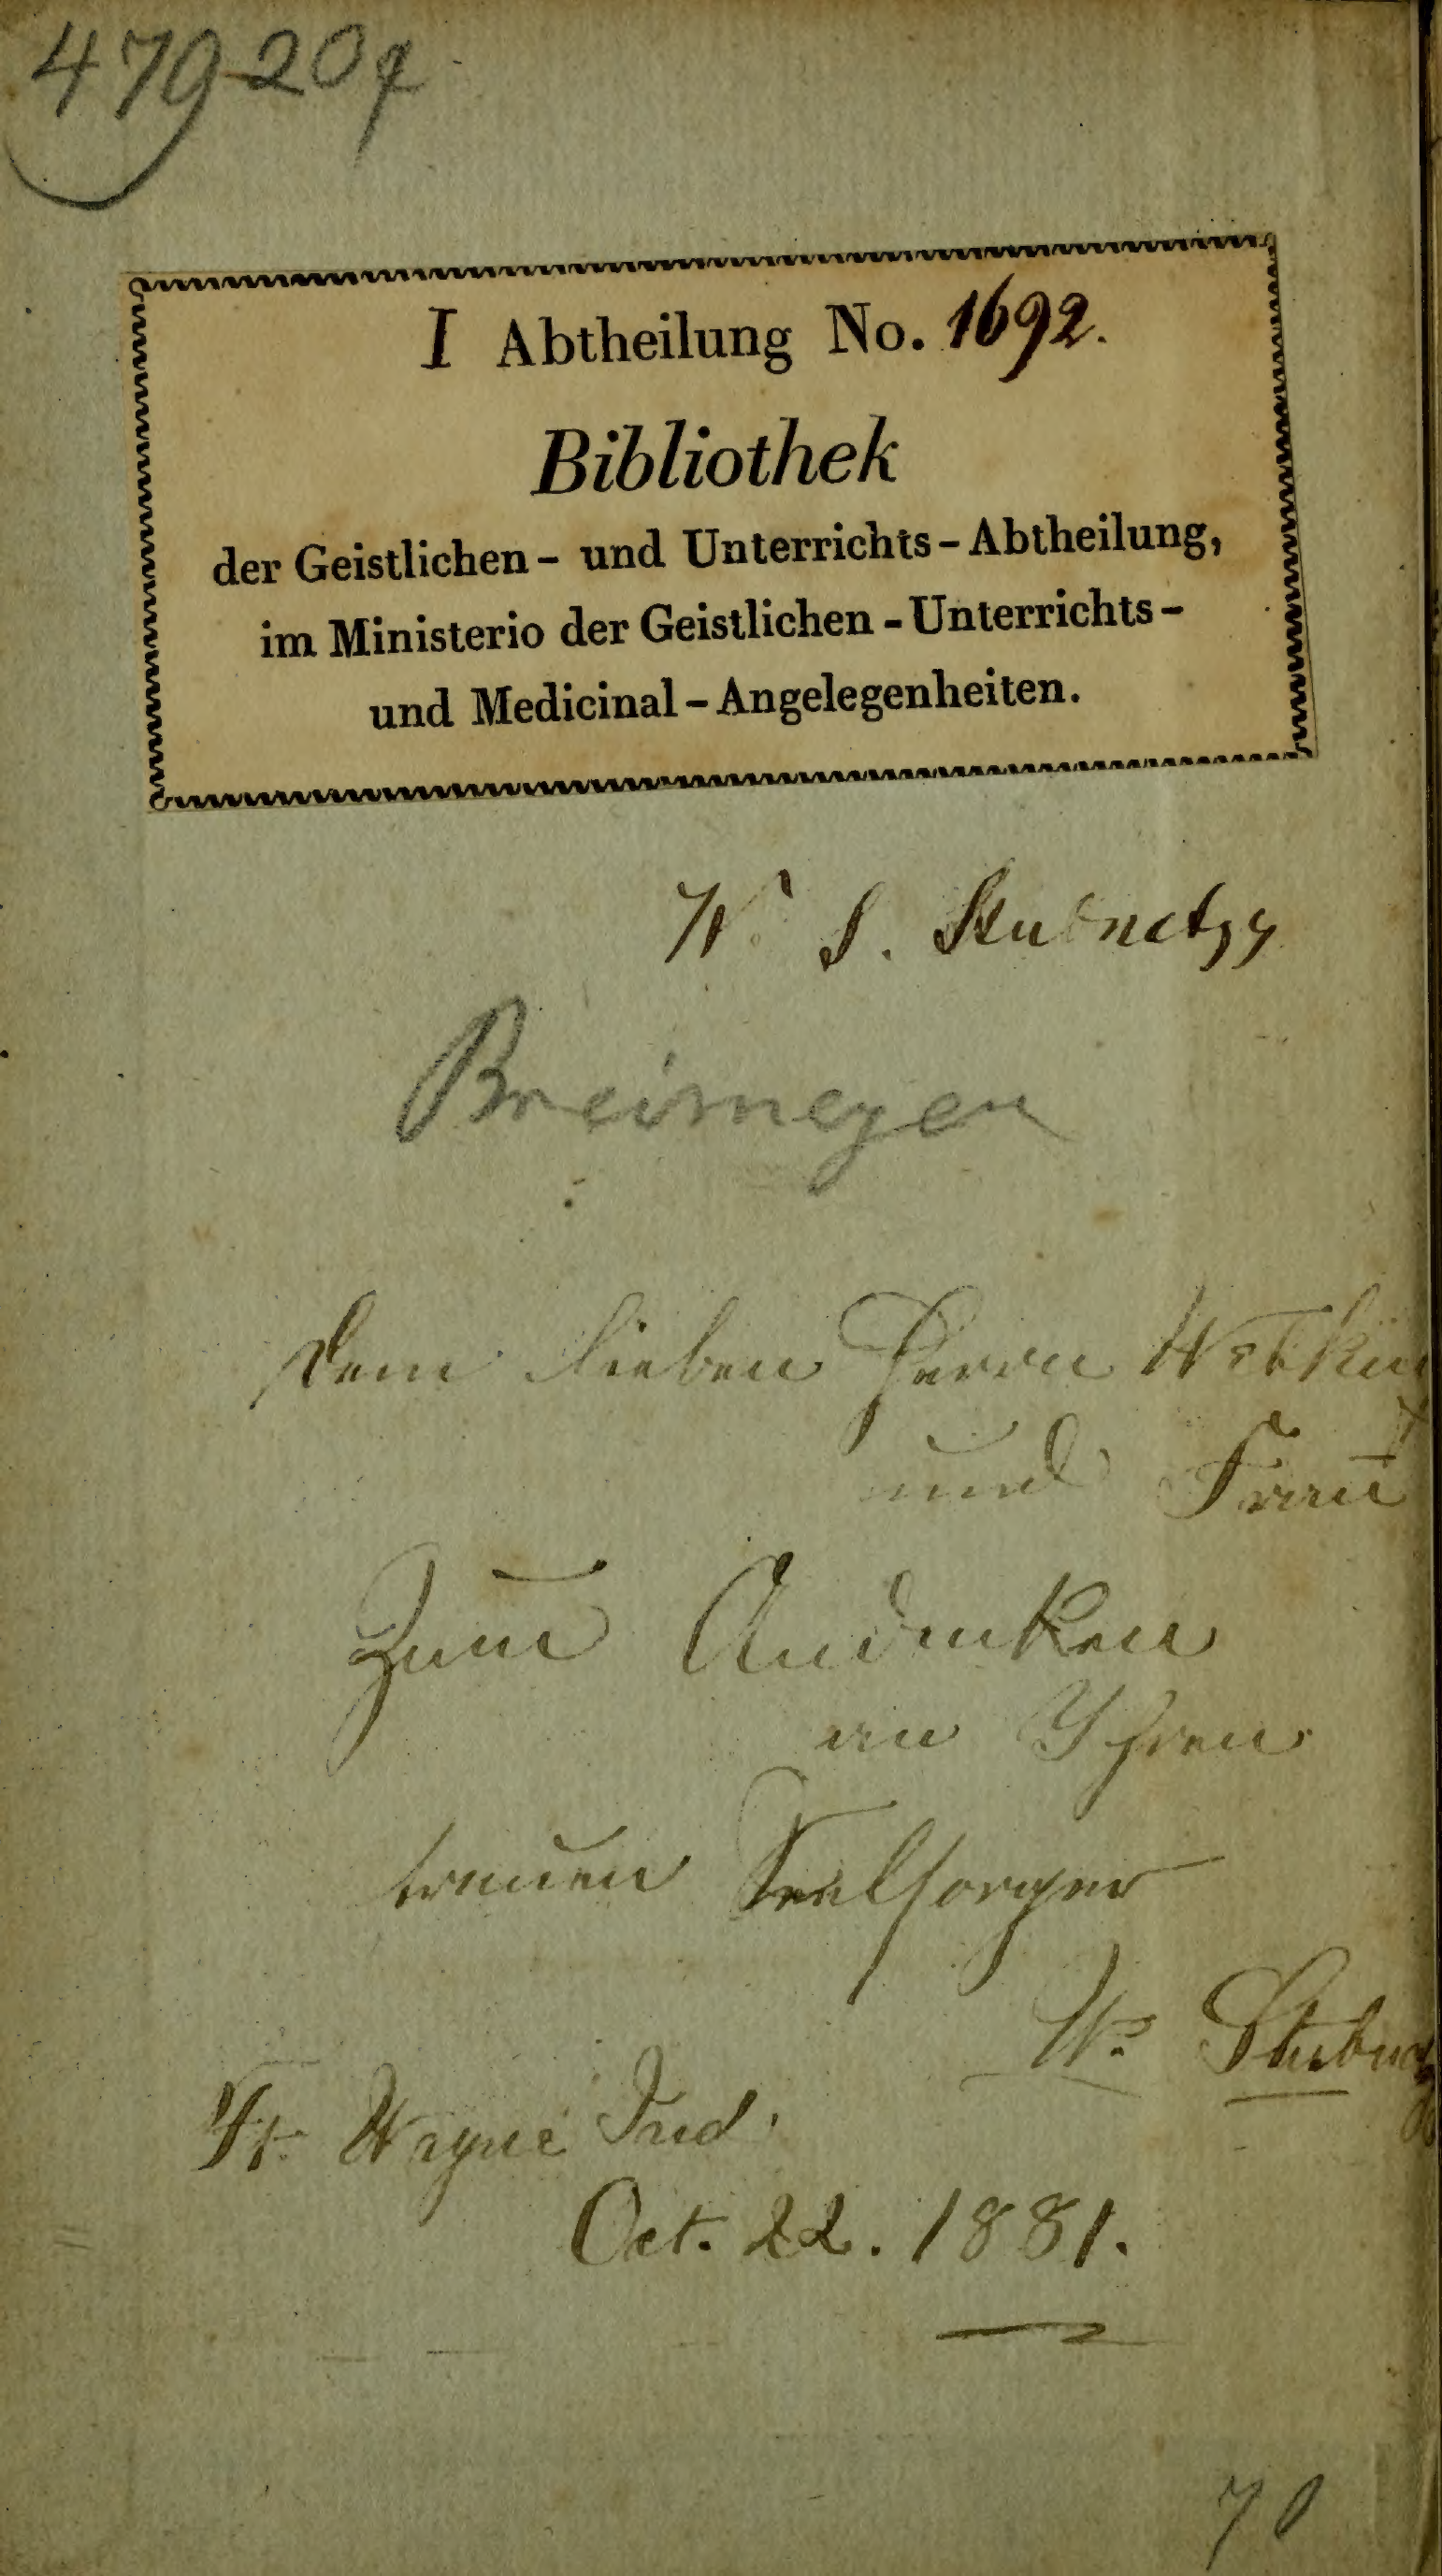 479-20q
I Abtheilung No. 1692.
Bibliothek
der Geistlichen- und Unterrichts-Abtheilung,
im Ministerio der Geistlichen-Unterrichts-
und Medicinal-Angelegenheiten.
W. S. Stubnatzy
Breimeyer
Dem lieben Herrn
und Frau
Zum Andenken
an Ihren
treuen Seelsorger
W. Stubnatzy
Ft. Wayne Ind.
Oct. 22. 1881.
70